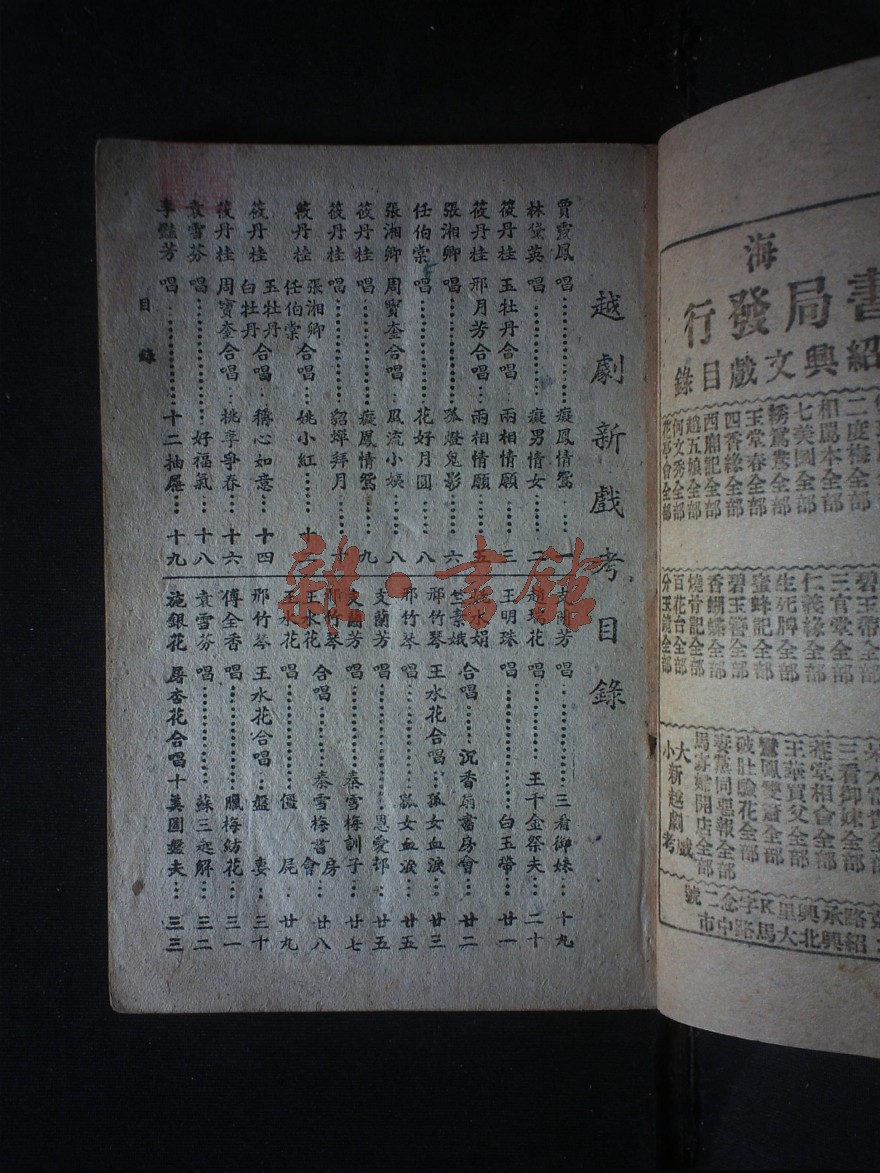 越劇新戲考目錄
賈靈鳳 唱 癡鳳情鴛 一
林黛英 唱 癡男情女 二
筱丹桂 玉牡丹合唱 兩相情願 三
筱丹桂 邢月芳合唱 兩相情願 五
張湘卿 唱 孤燈鬼影 六
任伯棠 唱 花好月圓 八
張湘卿 周寶奎合唱 風流小姨 八
筱丹桂 唱 癡鳳情鴛 九
筱丹桂 唱 貂蟬拜月 十
筱丹桂 張湘卿 任伯棠 合唱 姚小紅 十
筱丹桂 玉牡丹 白牡丹 合唱 稱心如意 十四
筱丹桂 周寶奎合唱 桃李爭春 十六
袁雪芬 唱 好福氣 十八
李豔芳 唱 十二抽屜 十九
支蘭芳 唱 三看御妹 十九
瑞花 唱 王千金祭夫 二十
王明珠 唱 白玉帶 廿一
水娟 竺素娥 合唱 沉香扇書房會 廿二
邢竹琴 王水花合唱 孤女血淚 廿三
邢竹琴 唱 孤女血淚 廿五
支蘭芳 唱 恩愛村 廿五
支蘭芳 唱 秦雪梅訓子 廿七
邢竹琴 王水花 合唱 秦雪梅書房會 廿八
王水花 唱 僵屍 廿九
邢竹琴 王水花合唱 盤妻 三十
傅全香 唱 臘梅紡花 三一
袁雪芬 唱 蘇三起解 三二
施銀花 屠杏花合唱 十美圖盤夫 三三
目錄
雜·書館
海
書局發行
紹興文戲目錄
二度梅全部
相罵本全部
七美圖全部
繡鴛鴦全部
玉堂春全部
四香緣全部
西廂記全部
趙五娘全部
何文秀全部
碧玉帶全
三官堂全部
仁義緣全部
生死牌全部
蜜蜂記全部
碧玉簪全部
香蝴蝶全部
燒骨記全部
百花台全部
分玉鏡全部
三看御妹全部
菴堂相會全部
王華買父全部
鸞鳳雙簫全部
破肚驗花全部
妻黨同惡報全部
馬寡婦開店全部
大戲
小新越劇考
路承興里K字念二號
紹興北大馬路中市